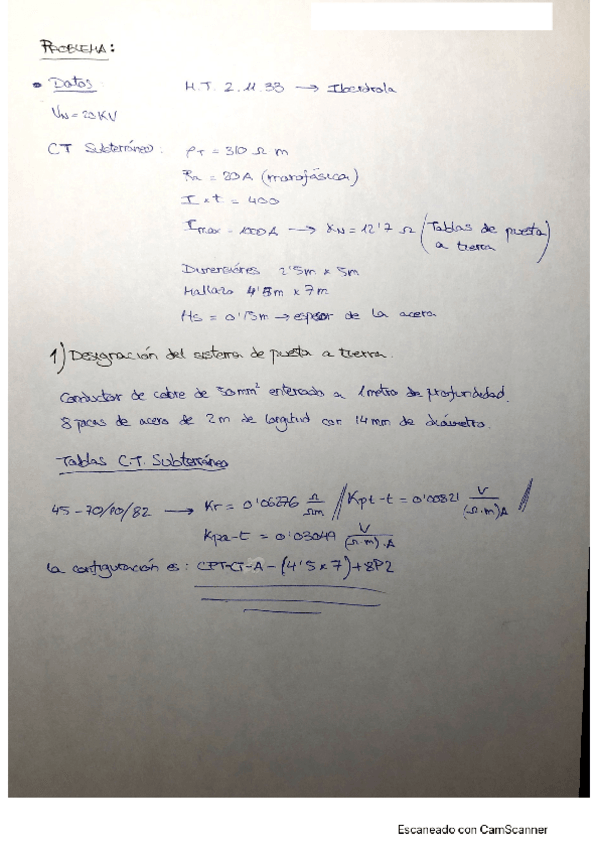 PROBLEMA:
• Datos: M.T. 2.11.33 → Iberdrola
VN = 20 KV
CT Subterráneo: ρT = 310 Ω m
Ra = 20A (monofásica)
I x t = 400
Imax = 1000A → XN = 12'7 Ω (Tablas de puesta a tierra)
Dimensiónes 2'5m x 5m
Mallazo 4'5m x 7m
Hs = 0'15m → espesor de la acera
1) Designación del sistema de puesta a tierra.
Conductor de cobre de 50mm² enterrado a 1 metro de profundidad.
8 picas de acero de 2m de longitud con 14mm de diámetro.
Tablas C.T. Subterráneo
45-70/10/82 → Kr = 0'06276 Ω/Ωm // Kpt-t = 0'00821 V/(Ω·m)A //
Kpa-t = 0'03049 V/(Ω·m)·A
la configuración es: CPT-CT-A-(4'5x7)+8P2
Escaneado con CamScanner